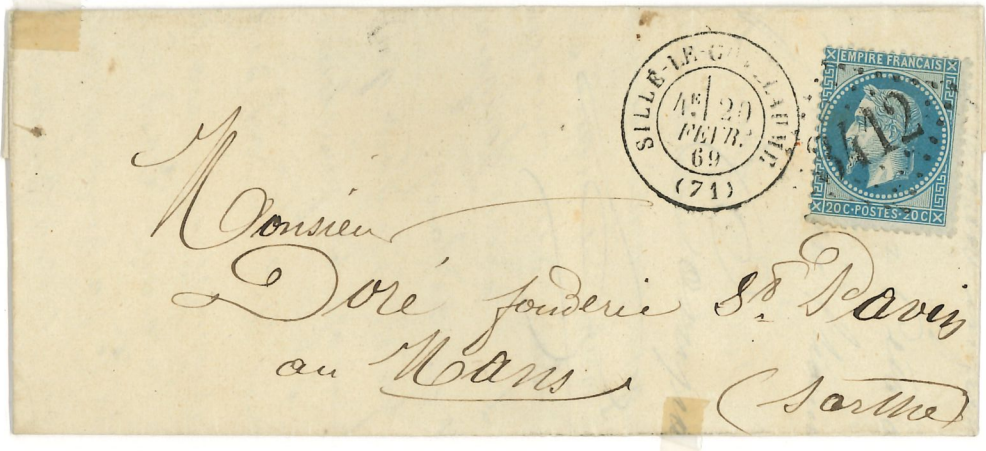 SILLÉ-LE-GUILLAUME
1
4E 20
FEVR.
69
(71)
EMPIRE FRANÇAIS
3412
20 C · POSTES · 20 C
Monsieur
Doré fonderie St. Pavin
au Mans (Sarthe)